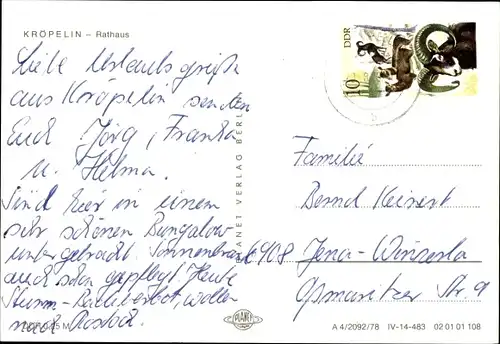 KRÖPELIN – Rathaus
Liebe Urlaubsgrüße
aus Kröpelin senden
Euch Jörg, Franka
u. Helma.
Sind hier in einem
sehr schönen Bungalow
untergebracht. Sonnenbrand
auch schon gepflegt. Heute
Sturm - Badeverbot, wollen
nach Rostock.
PLANET VERLAG BERLIN
DDR
10
Familie
Bernd Keinert
6908 Jena-Winzerla
Str. 9
PLANET
A 4/2092/78 IV-14-483 02 01 01 108